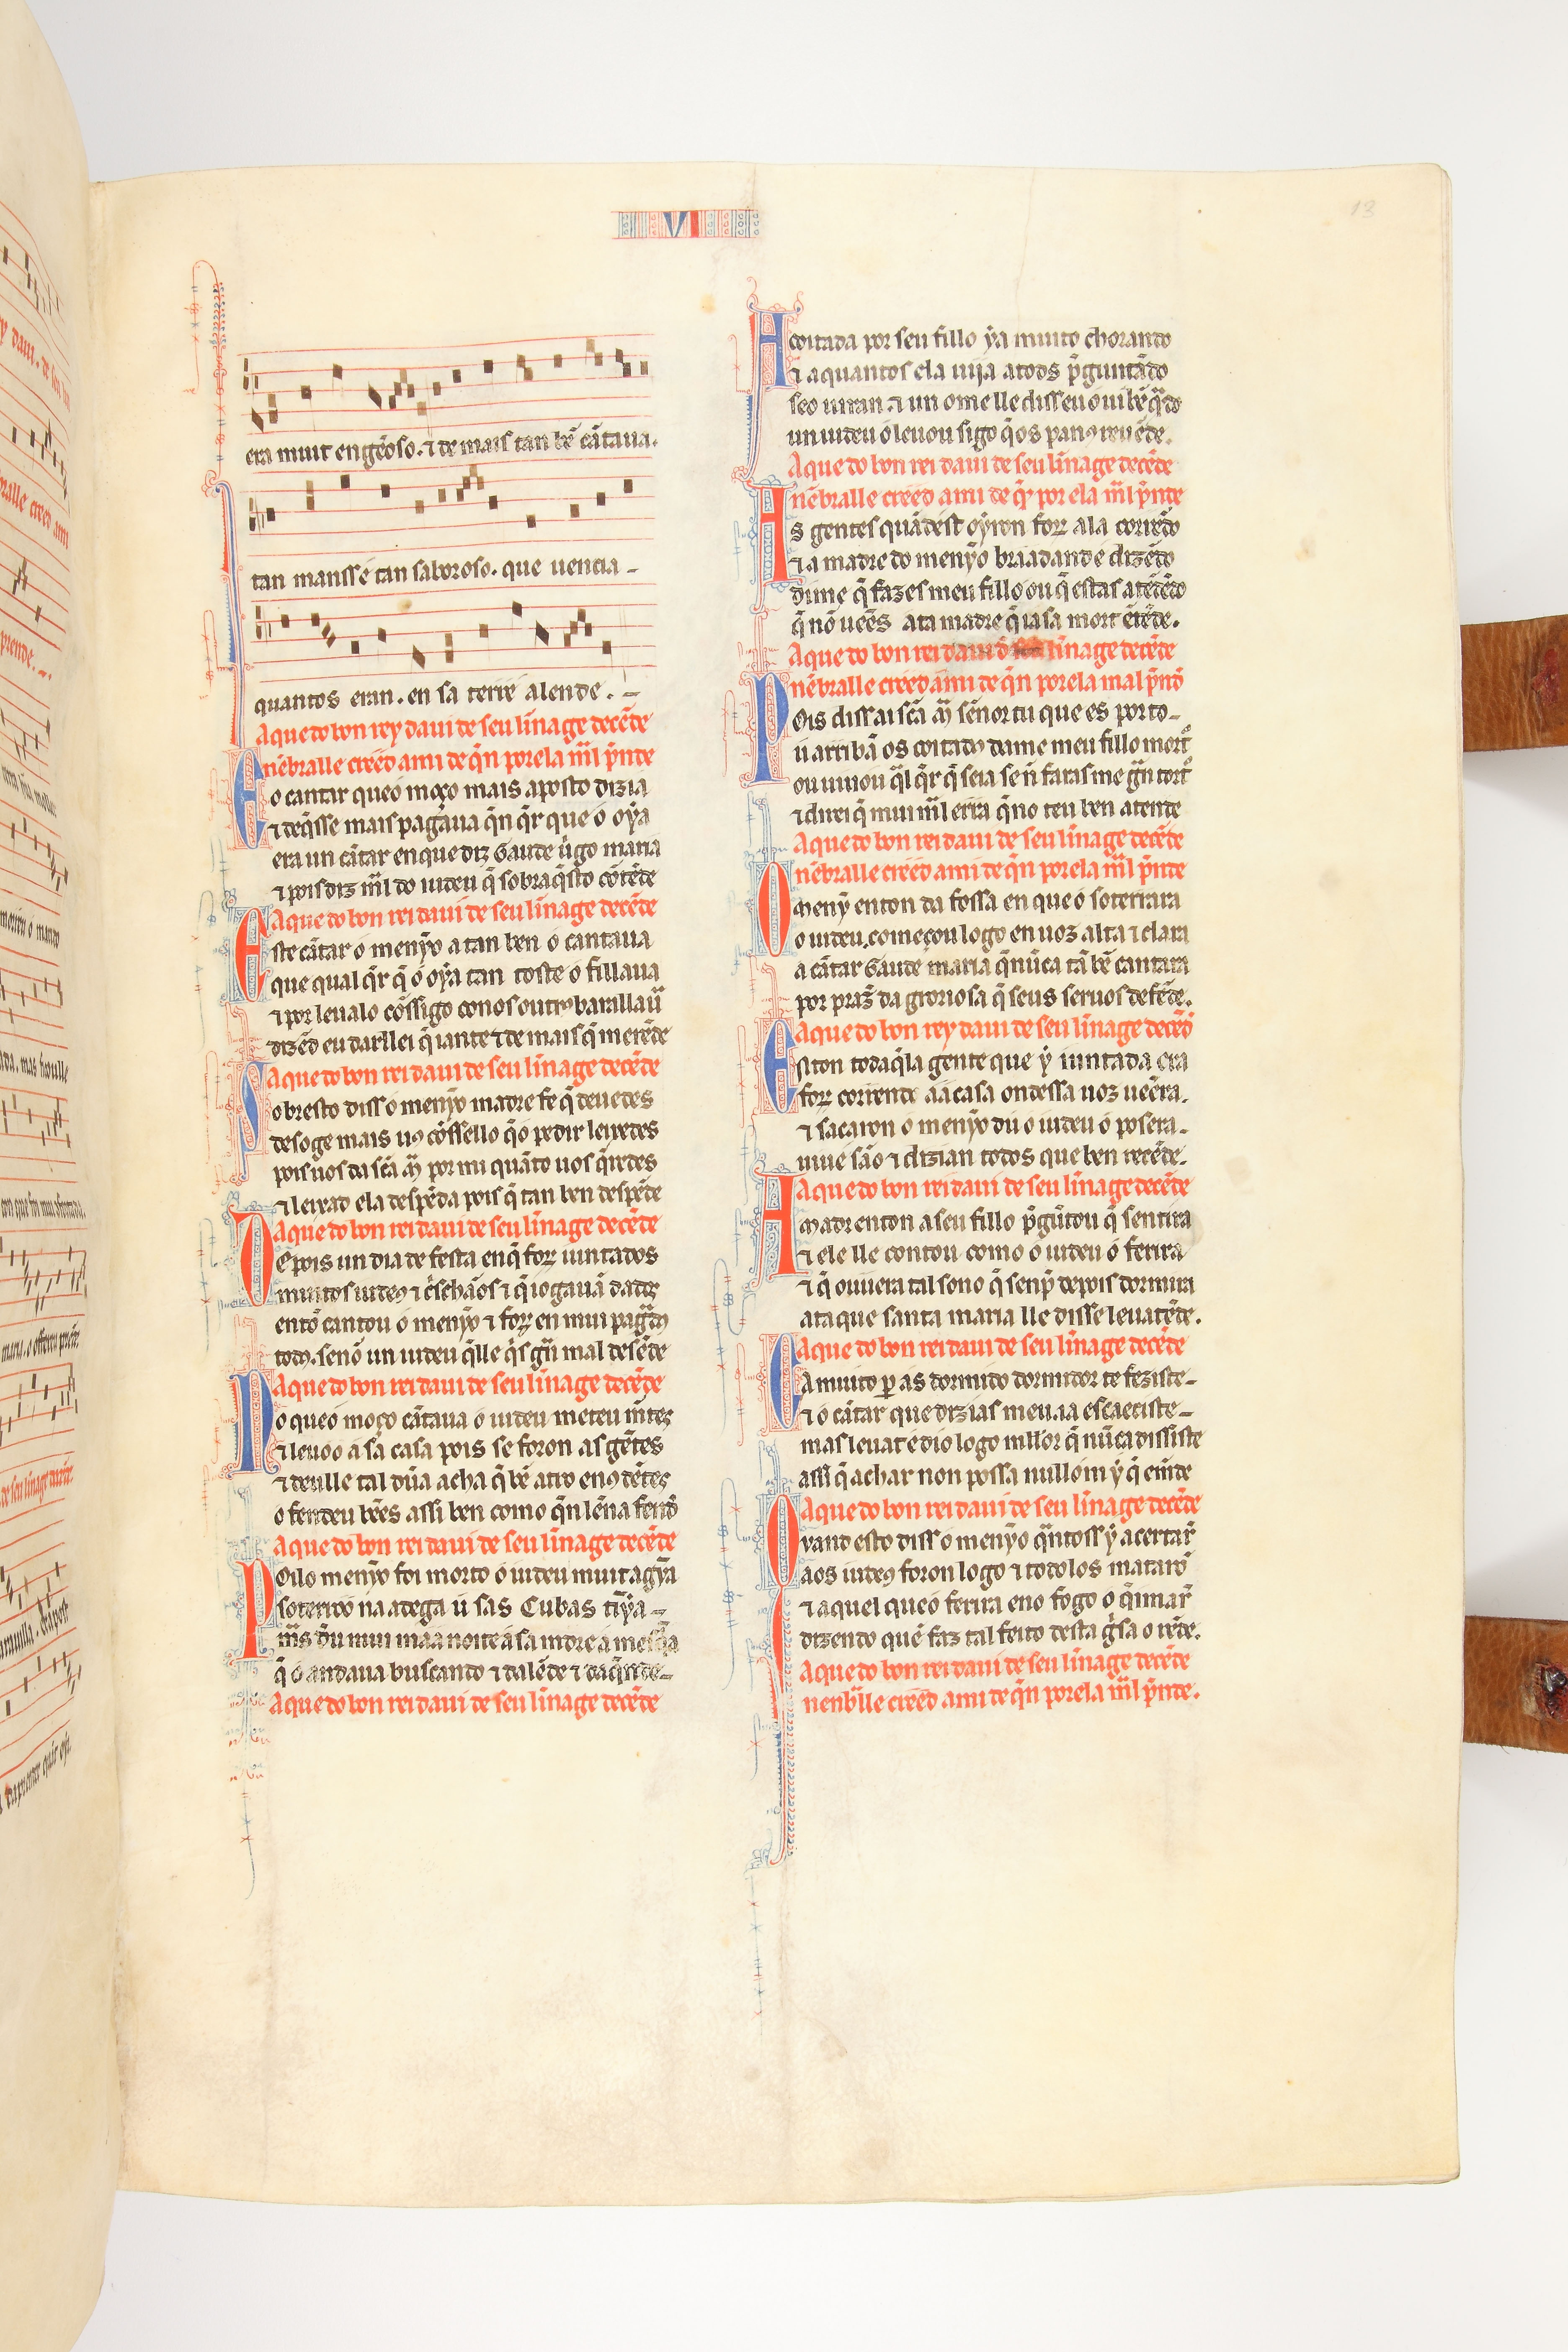 VI
13
era muit engẽoso. ⁊ de mais tan bẽ cãtaua.
tan mansse tan saboroso. que uencia –
quantos eran. en sa terre alende. –
A que do bon rey daui de seu linage decẽde
nẽbralle creed a mi de q̃n por ela m̃l p̃nde
Eo cantar que ó moço mais aposto dizia
⁊ de q̃sse mais pagaua q̃n q̃r que ó oỹa
era un cãtar en que diz Gaude ũgo maria
⁊ pois diz m̃l do iudeu q̃ sobr aq̃sto cõtẽde
A que do bon rei daui de seu linage decẽde
Este cãtar o menỹo a tan ben o cantaua
que qual q̃r q̃ o oỹa tan toste o fillaua
⁊ por leualo cõssigo conos outrꝯ barallau̾
dizẽd eu darllei q̃ iante ⁊ de mais q̃ merẽde
A que do bon rei daui de seu linage decẽde
Sobresto diss o menỹo madre fe q̃ deuedes
des oge mais uꝯ cõssello q̃ o pedir leixedes
pois uos da scã m̃ por mi quãto uos q̃redes
⁊ leixad ela despẽda pois q̃ tan ben despẽde
A que do bon rei daui de seu linage decẽde
Depois un dia de festa en q̃ forꝝ iuntados
muitos iudeꝯ ⁊ c̃schãos ⁊ q̃ iogauã dadꝯ
entõ cantou o menỹo ⁊ forꝝ en mui pag̃dꝯ
todꝯ. senõ un iudeu q̃lle q̃s g̃n mal desẽde
A que do bon rei daui de seu linage decẽde
No que o moço cãtaua o iudeu meteu mẽtes
⁊ leuoo a sa casa pois se foron as gẽtes
⁊ deulle tal dũa acha q̃ bẽ atro enꝯ dẽtes
o fendeu bẽes assi ben como q̃n lẽna fend̃
A que do bon rei daui de seu linage decẽde
Poilo menỹo foi morto o iudeu muit agỹa
soterroo na adega u sas Cubas tĩỹa –
m̃s d̃u mui máá noite a sa m̃dre a mesq̃̃a
q̃ o andaua buscando ⁊ dalẽde ⁊ daq̃nde –
A que do bon rei daui de seu linage decẽde
A coitada por seu fillo ỹa muito chorando
⁊ a quantos ela uija a todos p̃guntãdo
se o uiran. ⁊ un ome lle disse u o ui bẽ q̃do
un iudeu o leuou sigo q̃ os panꝯ reuẽde.
A que do bon rei daui de seu linage decẽde
nẽbralle creed a mi de q̃n por ela m̃l p̃nde
As gentes quãdest oỹron forꝝ ala corrẽdo
⁊ a madre do menỹo braadand e dizẽdo
di me q̃ fazes meu fillo ou q̃ estas atẽdẽdo
q̃ nõ uẽes a ta madre q̃ ia sa mort ẽtẽde.
A que do bon rei daui d̃ seu linage decẽde
nẽbralle creed a mi de q̃n por ela mal p̃nd̃
Pois diss ai scã m̃ sẽnor tu que es porto –
u arribã os coitadꝯ dame meu fillo mort̾
ou uiuo u q̃l q̃r q̃ seia se ñ faras me g̃n tort̾
⁊ direi q̃ mui m̃l erra q̃no teu ben atende
A que do bon rei daui de seu linage decẽde
nẽbralle creed a mi de q̃n por ela m̃l p̃nde
O menỹ enton da fossa en que o soterrara
o iudeu. começou logo en uoz alta ⁊ clara
a cãtar Gaude maria q̃ nũca tã bẽ cantara
por praz̃ da groriosa q̃ seus seruos defẽde.
A que do bon rey daui de seu linage decẽd̃
Enton toda q̃la gente que ỹ iuntada era
forꝝ corrende aa casa ond essa uoz uẽera.
⁊ sacaron o menỹo du o iudeu o posera –
uiue são ⁊ dizian todos que ben recẽde.
A que do bon rei daui de seu linage decẽde
A madr enton a seu fillo p̃gũtou q̃ sentira
⁊ ele lle contou como o iudeu o ferira
⁊ q̃ ouuera tal sono q̃ senp̃ depois dormira
ata que santa maria lle disse leuatẽde.
A que do bon rei daui de seu linage decẽde
Ca muito ꝑ as dormido dormidor te feziste –
⁊ o cãtar que dizias meu. ia escaeciste –
mas leuat e dio logo mllor q̃ nũca dissiste
assi q̃ achar non possa null om ỹ q̃ em̃de
A que do bon rei daui de seu linage decẽde
Quand esto diss o menỹo q̃ntoss ỹ acertar̃
aos iudeꝯ foron logo ⁊ todolos matarõ
⁊ aquel que o ferira eno fogo o q̃imar̃
dizendo que faz tal feito desta g̃sa o rẽde.
A que do bon rei daui de seu linage decẽde
nenb̃lle creed a mi de q̃n por ela m̃l p̃nde.